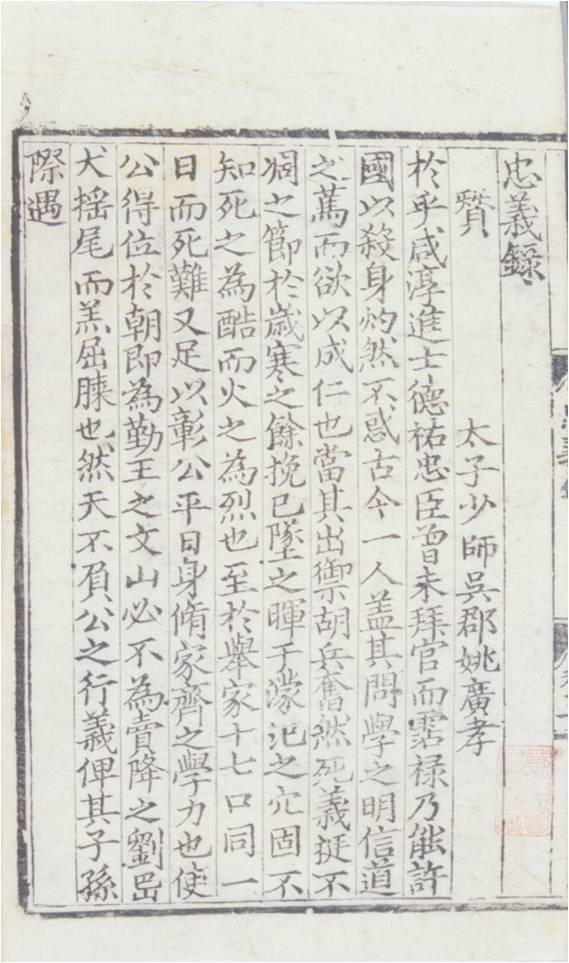 忠義錄
贊
太子少師吳郡姚廣孝
於乎咸淳進士德祐忠臣曾未拜官而霑禄乃能許
國以殺身灼然不惑古今一人盖其問學之明信道
之篤而欲以成仁也當其出禦胡兵奮然死義挺不
凋之節於歲寒之餘挽已墜之暉于濛汜之穴固不
知死之為酷而火之為烈也至於舉家十七口同一
日而死難又足以彰公平日身脩家齊之學力也使
公得位於朝即為勤王之文山必不為賣降之劉岊
犬揺尾而羔屈膝也然天不負公之行義俾其子孫
際遇